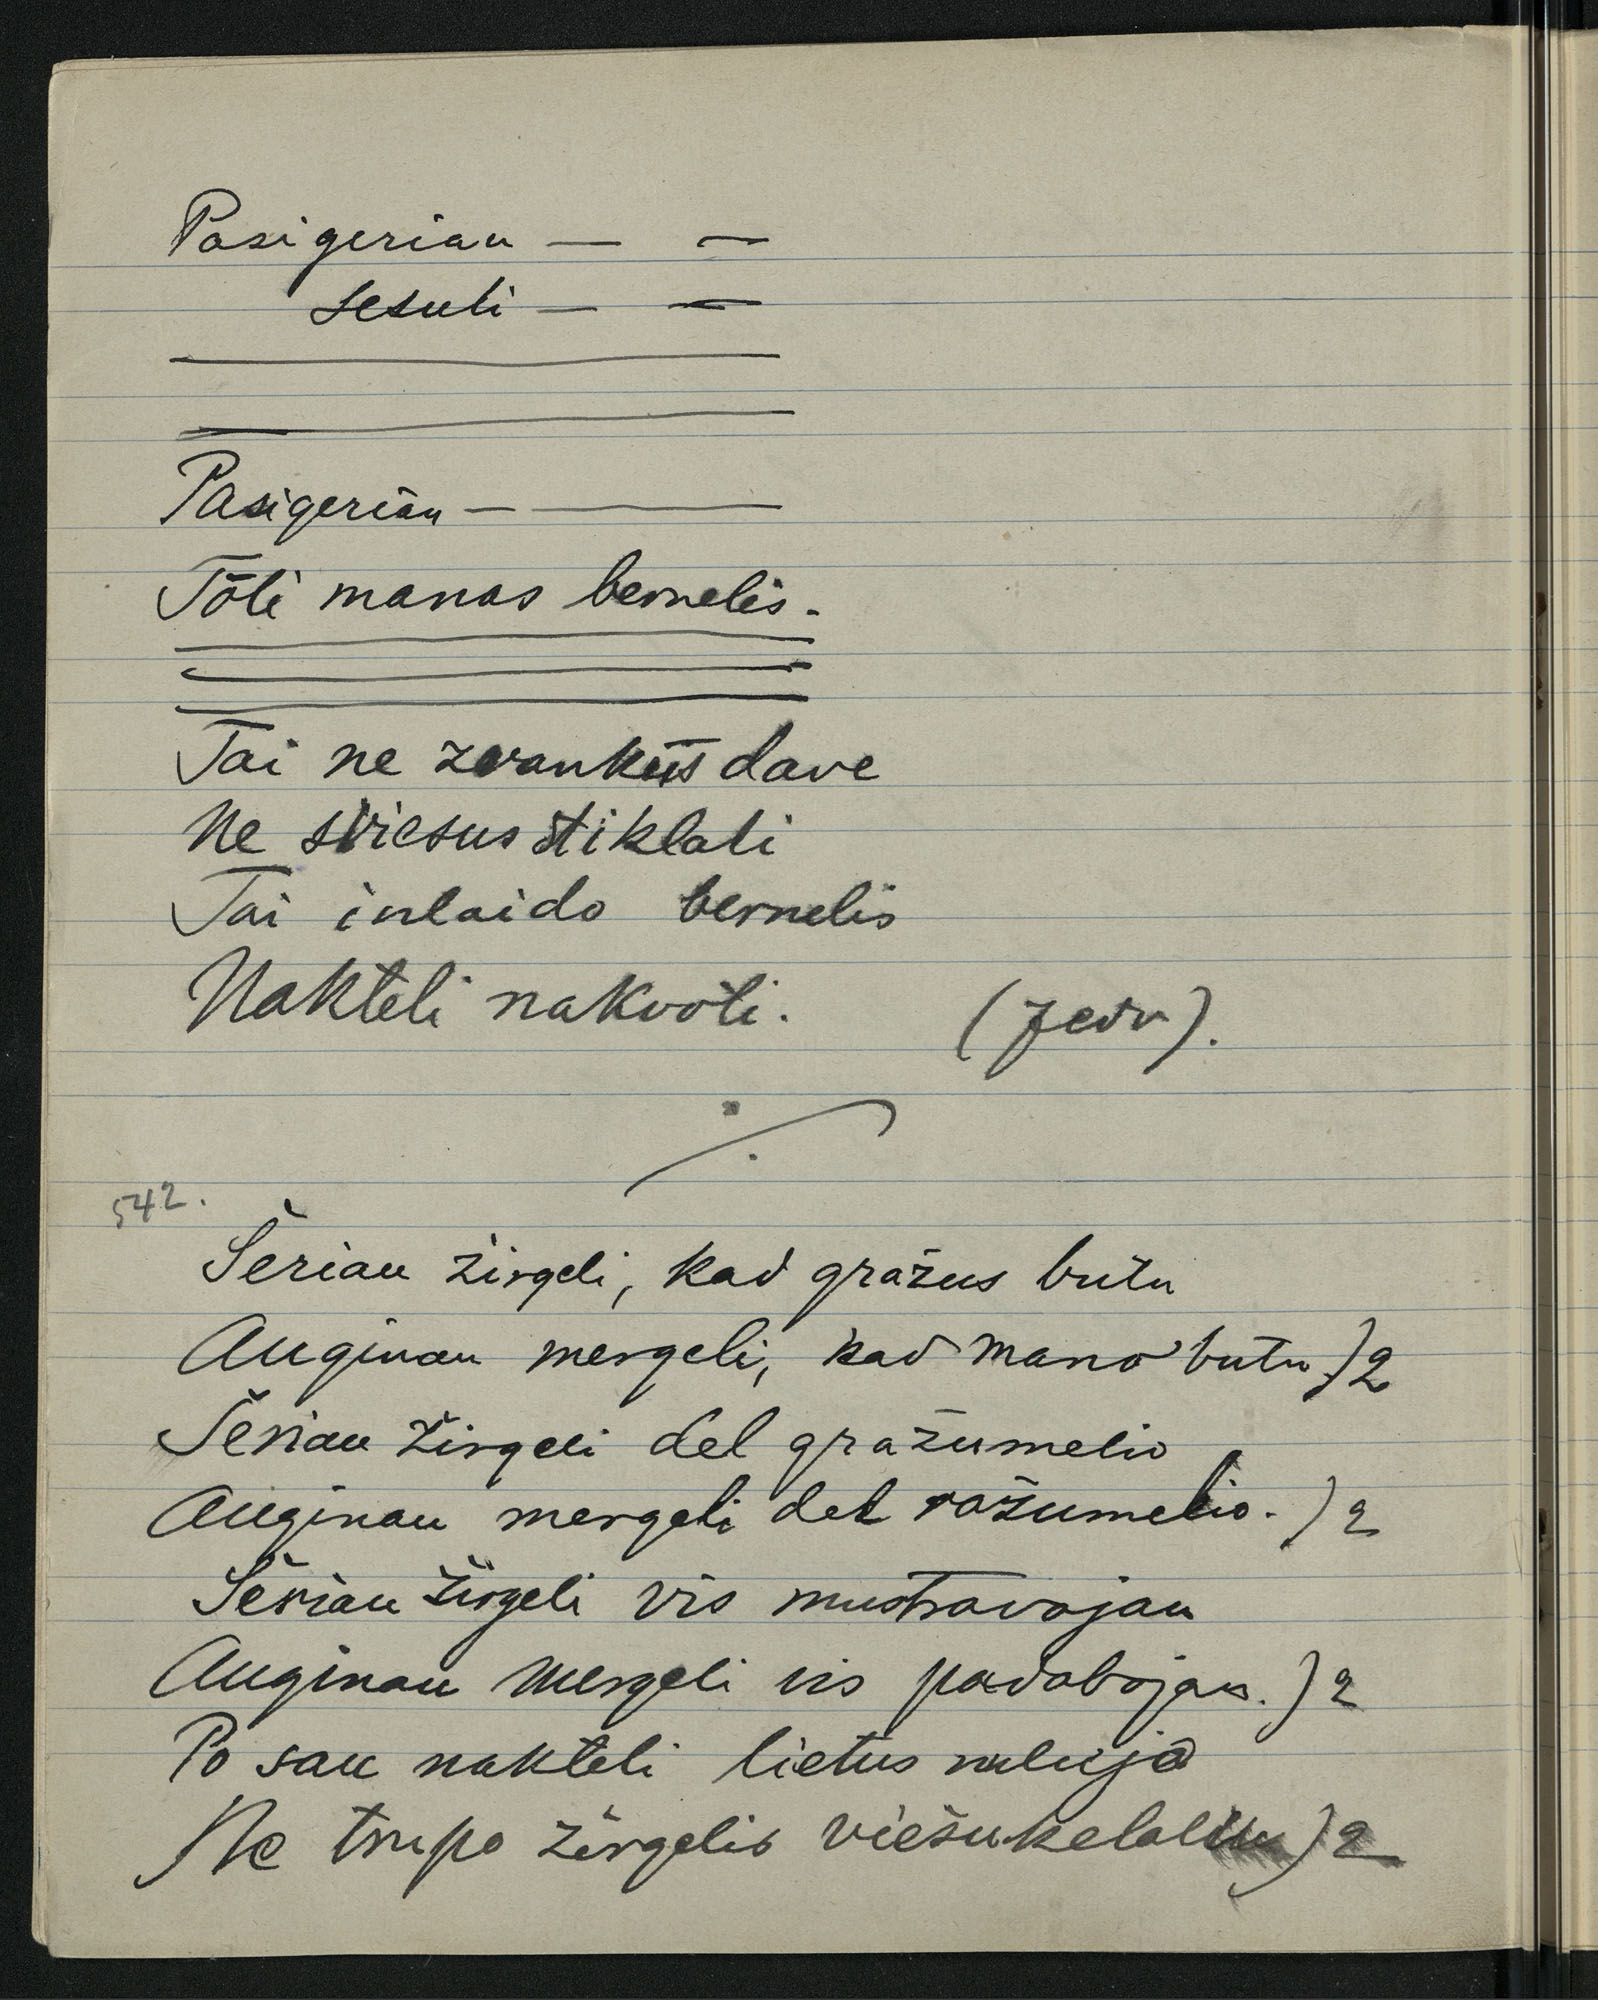 Pasigeriau — —
sesuli — —
Pasigeriau — —
Toli manas bernelis.
Tai ne zvankus dave
Ne sviesus stiklali
Tai inlaido bernelis
Nakteli nakvoti. (Jedv).
542.
Šeriau žirgeli, kad gražus butu
Auginau mergeli, kad mano butu )2
Šeriau žirgeli del gražumelio
Auginau mergeli del ražumelio. )2
Šeriau žirgeli vis mustravojau
Auginau mergeli vis padabojau. )2
Po sau nakteli lietus nulijo
Ne trupo žirgelis viešukelaliu )2